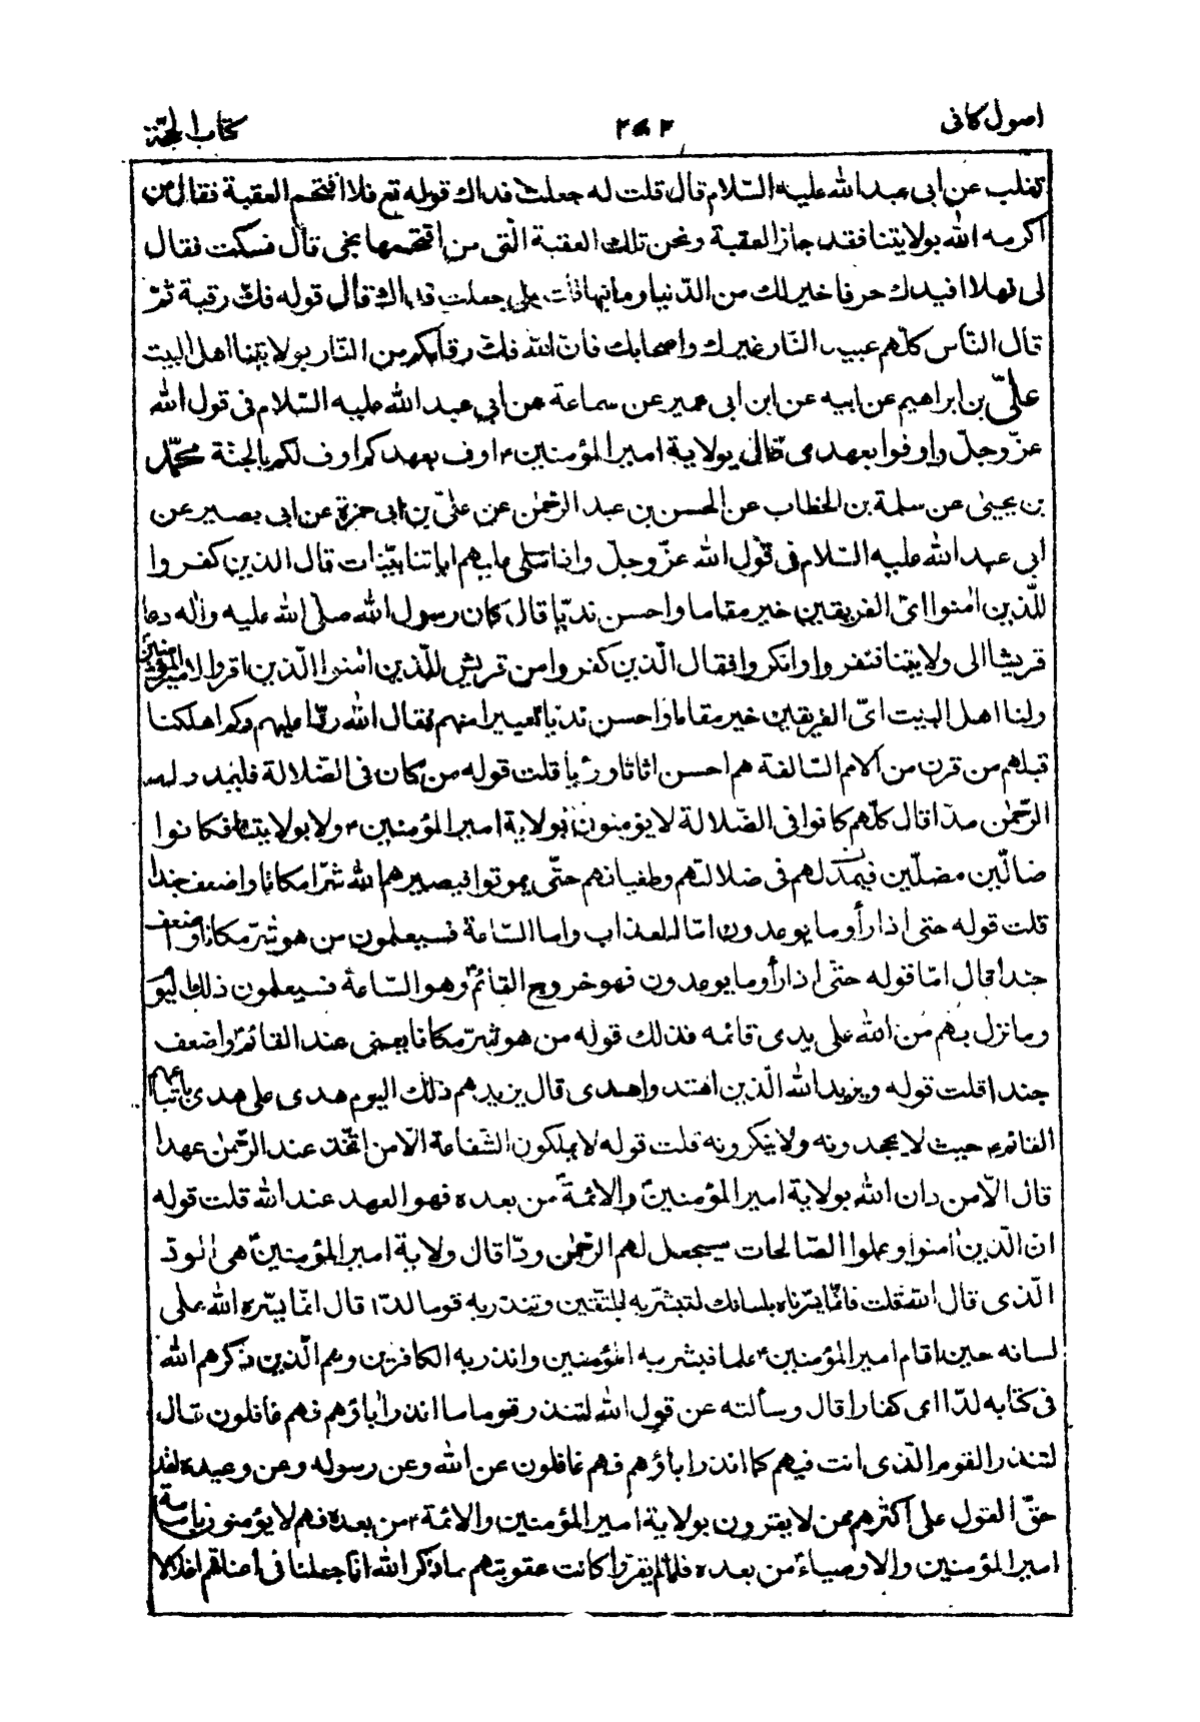 اصول كافى
كتاب الحجّة
تغلب عن ابى عبد الله عليه السّلام قال قلت له جعلت فداك قوله تع فلا اقتحم العقبة فقال من
اكرمه الله بولايتنا فقد جاز العقبة ونحن تلك العقبة الّتى من اقتحمها نجى قال فسكت فقال
لى فهلا افيدك حرفا خير لك من الدّنيا وما فيها قلت بلى جعلت فداك قال قوله فكّ رقبة ثمّ
قال النّاس كلّهم عبيد النّار غيرك واصحابك فانّ الله فكّ رقابكم من النّار بولايتنا اهل البيت
علىّ بن ابراهيم عن ابيه عن ابن ابى عمير عن سماعة عن ابى عبد الله عليه السّلام فى قول الله
عزّ وجلّ واوفوا بعهدى قال بولاية امير المؤمنين ع اوف بعهدكم اوف لكم بالجنّة محمّد
بن يحيى عن سلمة بن الخطاب عن الحسن بن عبد الرّحمٰن عن علىّ بن ابى حمزة عن ابى بصير عن
ابى عبد الله عليه السّلام فى قول الله عزّ وجلّ واذا تتلى عليهم اياتنا بيّنات قال الذين كفروا
للّذين امنوا اىّ الفريقين خير مقاما واحسن نديّا قال كان رسول الله صلّى الله عليه واله دعا
قريشا الى ولايتنا فنفروا وانكروا فقال الّذين كفروا من قريش للّذين امنوا الّذين اقروا لامير المؤمنين
ولنا اهل البيت اىّ الفريقين خير مقاما واحسن نديّا تعييرا منهم فقال الله ردّا عليهم وكم اهلكنا
قبلهم من قرن من الامم السّالفة هم احسن اثاثا ورءيا قلت قوله من كان فى الضّلالة فليمدد له
الرّحمٰن مدّا قال كلّهم كانوا فى الضّلالة لا يؤمنون بولاية امير المؤمنين ع ولا بولايتنا فكانوا
ضالّين مضلّين فيمدّ لهم فى ضلالتهم وطغيانهم حتّى يموتوا فيصيرهم الله شرّا مكانا واضعف جندا
قلت قوله حتى اذا رأوما يوعدون امّا العذاب واما السّاعة فسيعلمون من هو شرّ مكانا واضعف
جندا قال امّا قوله حتّى اذا رأوما يوعدون فهو خروج القائم ع وهو السّاعة فسيعلمون ذلك اليوم
وما نزل بهم من الله على يدى قائمه فذلك قوله من هو شرّ مكانا يعنى عند القائم ع واضعف
جندا قلت قوله ويزيد الله الّذين اهتدوا هدى قال يزيدهم ذلك اليوم هدى على هدى باتباعهم
القائم ع حيث لا يجحدونه ولا ينكرونه قلت قوله لا يملكون الشّفاعة الّا من اتّخذ عند الرّحمٰن عهدا
قال الّا من دان الله بولاية امير المؤمنين ع والائمة ع من بعده فهو العهد عند الله قلت قوله
انّ الّذين امنوا وعملوا الصّالحات سيجعل لهم الرّحمٰن ودّا قال ولاية امير المؤمنين ع هى الودّ
الّذى قال الله قلت فانّما يسّرناه بلسانك لتبشّر به المتّقين وتنذر به قوما لدّا قال انّما يسّره الله على
لسانه حين اقام امير المؤمنين ع علما فبشر به المؤمنين وانذر به الكافرين وهم الّذين ذكرهم الله
فى كتابه لدّا اى كفارا قال وسألته عن قول الله لتنذر قوما ما انذر اباؤهم فهم غافلون قال
لتنذر القوم الّذى انت فيهم كما انذر اباؤهم فهم غافلون عن الله وعن رسوله وعن وعيده لقد
حقّ القول على اكثرهم ممن لا يقرّون بولاية امير المؤمنين والائمة ع من بعده فهم لا يؤمنون بامامة
امير المؤمنين والاوصياء من بعده فلمّا لم يقرّوا كانت عقوبتهم ما ذكر الله انّا جعلنا فى اعناقهم اغلالا